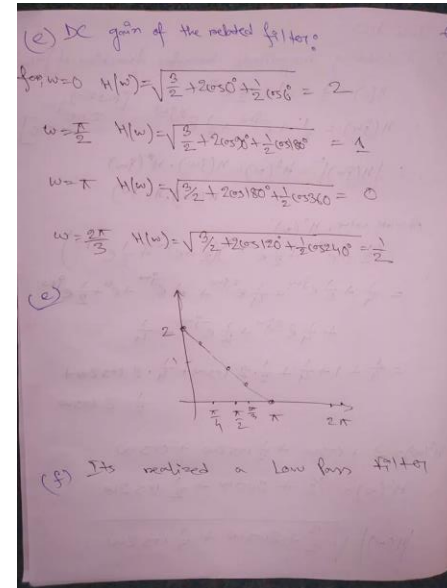 (e) DC gain of the related filter:
for, w=0 H(w)=√(3/2 + 2cos0° + 1/2 cos0°) = 2
w=π/2 H(w)=√(3/2 + 2cos90° + 1/2 cos180°) = 1
w=π H(w)=√(3/2 + 2cos180° + 1/2 cos360) = 0
w=2π/3 H(w)=√(3/2 + 2cos120° + 1/2 cos240°) = 1/2
(e)
2
π/4 π/2 π 2π
(f) Its realized a Low Pass filter